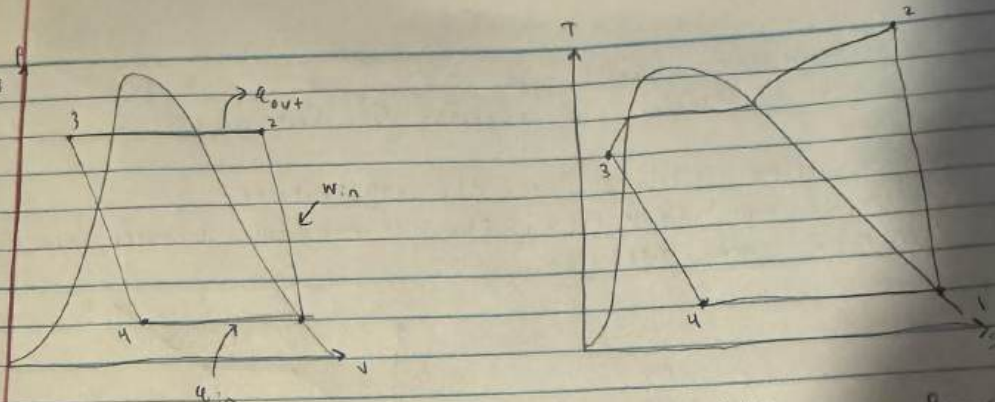 P
3
q out
2
w in
4
q in
v
T
2
3
4
1